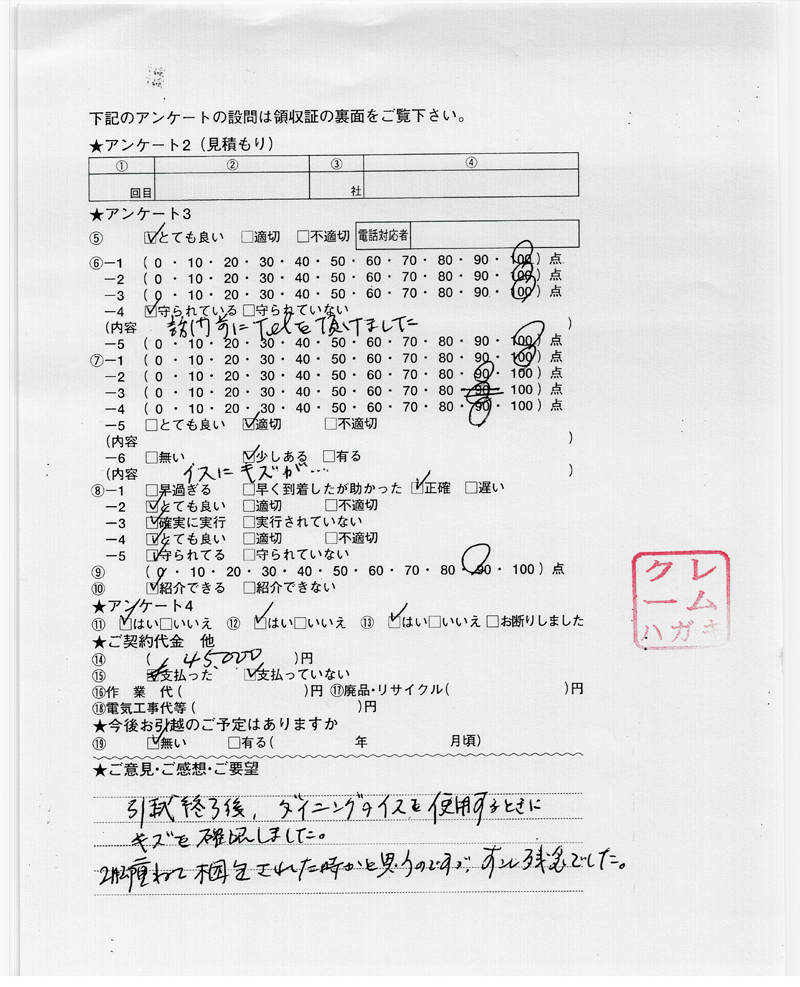 下記のアンケートの設問は領収証の裏面をご覧下さい。
★アンケート2（見積もり）
① ② ③ ④
回目 社
★アンケート3
⑤ ☑とても良い □適切 □不適切 電話対応者
⑥－1 （0・10・20・30・40・50・60・70・80・90・100）点
－2 （0・10・20・30・40・50・60・70・80・90・100）点
－3 （0・10・20・30・40・50・60・70・80・90・100）点
－4 ☑守られている □守られていない
（内容 訪問前にTelを頂けました ）
－5 （0・10・20・30・40・50・60・70・80・90・100）点
⑦－1 （0・10・20・30・40・50・60・70・80・90・100）点
－2 （0・10・20・30・40・50・60・70・80・90・100）点
－3 （0・10・20・30・40・50・60・70・80・90・100）点
－4 （0・10・20・30・40・50・60・70・80・90・100）点
－5 □とても良い ☑適切 □不適切
（内容 ）
－6 □無い ☑少しある □有る
（内容 イスにキズが… ）
⑧－1 □早過ぎる □早く到着したが助かった ☑正確 □遅い
－2 ☑とても良い □適切 □不適切
－3 ☑確実に実行 □実行されていない
－4 ☑とても良い □適切 □不適切
－5 ☑守られてる □守られていない
⑨ （0・10・20・30・40・50・60・70・80・90・100）点
⑩ ☑紹介できる □紹介できない
★アンケート4
⑪ ☑はい□いいえ ⑫ ☑はい□いいえ ⑬ ☑はい□いいえ □お断りしました
★ご契約代金 他
⑭ （ 45,000 ）円
⑮ ☑支払った ☑支払っていない
⑯作 業 代（ ）円 ⑰廃品・リサイクル（ ）円
⑱電気工事代等（ ）円
★今後お引越のご予定はありますか
⑲ ☑無い □有る（ 年 月頃）
★ご意見・ご感想・ご要望
引越終了後、ダイニングのイスを使用するときに
キズを確認しました。
2脚重ねて梱包された時かと思うのですが、少し残念でした。
クレ
ーム
ハガキ